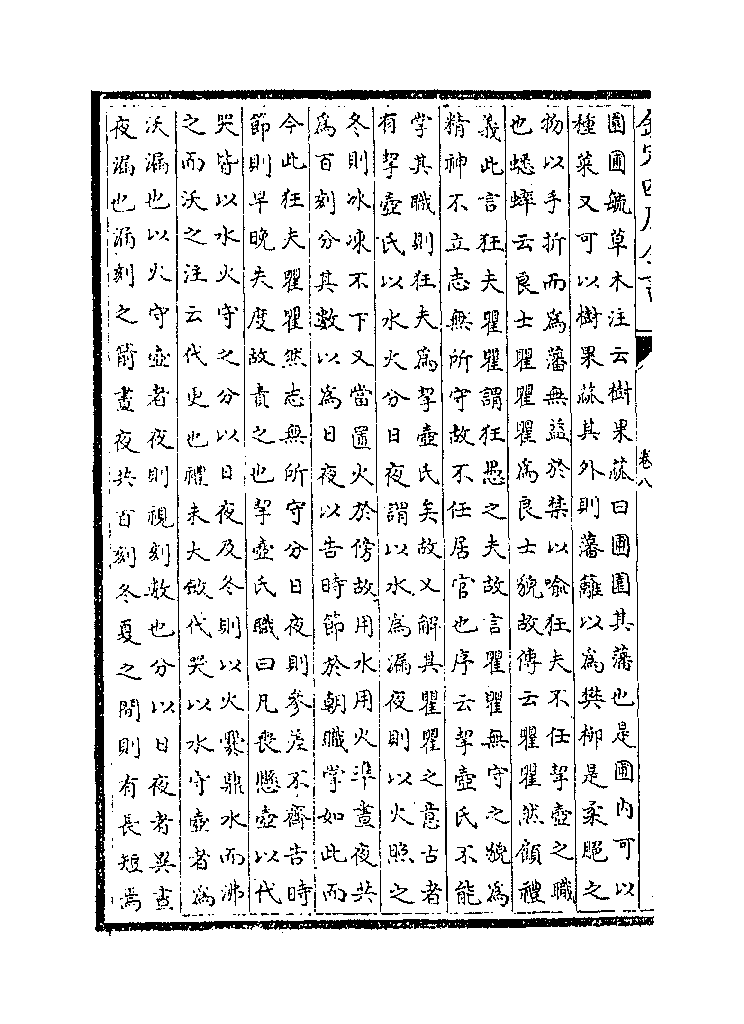 欽定四庫全書
卷八
園圃毓草木注云樹果蓏曰圃園其藩也是圃内可以
種菜又可以樹果蓏其外則藩籬以為樊柳是柔脆之
物以手折而為藩無益於禁以喻狂夫不任挈壺之職
也蟋蟀云良士瞿瞿瞿為良士貌故傳云瞿瞿然顧禮
義此言狂夫瞿瞿謂狂愚之夫故言瞿瞿無守之貌為
精神不立志無所守故不任居官也序云挈壺氏不能
掌其職則狂夫為挈壺氏矣故又解其瞿瞿之意古者
有挈壺氏以水火分日夜謂以水為漏夜則以火照之
冬則冰凍不下又當置火於傍故用水用火準晝夜共
為百刻分其數以為日夜以告時節於朝職掌如此而
今此狂夫瞿瞿然志無所守分日夜則參差不齊告時
節則早晚失度故責之也挈壺氏職曰凡喪懸壺以代
哭皆以水火守之分以日夜及冬則以火爨鼎水而沸
之而沃之注云代更也禮未大斂代哭以水守壺者為
沃漏也以火守壺者夜則視刻數也分以日夜者異晝
夜漏也漏刻之箭晝夜共百刻冬夏之間則有長短焉